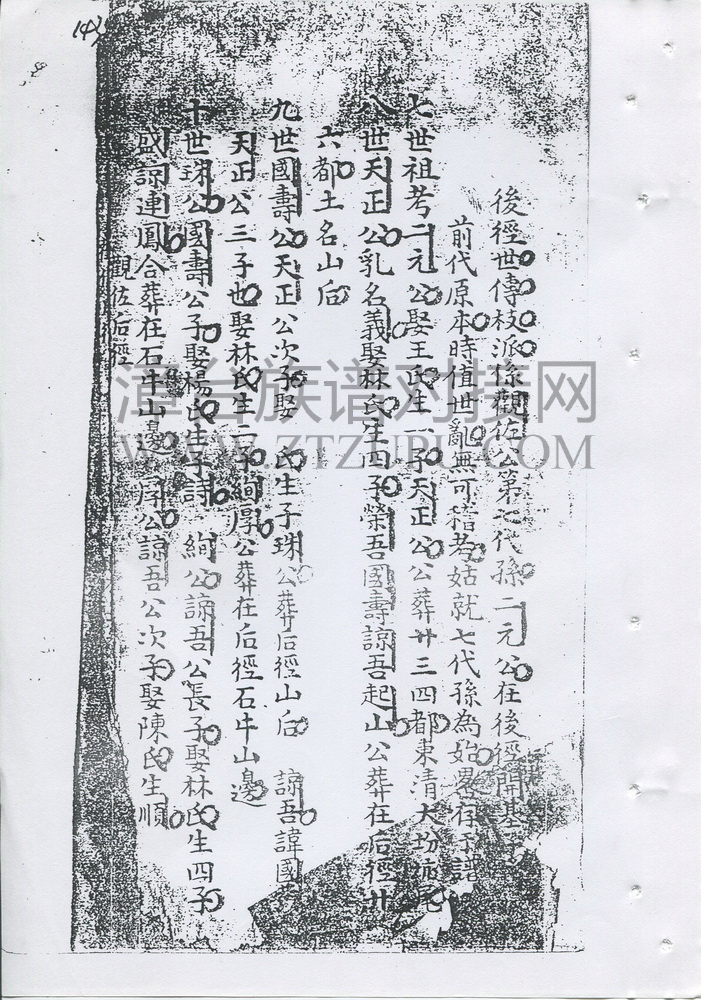 143
後徑世傳枝派孫觀佐公第七代孫二元公在後徑開基
前代原本時值世亂無可稽考姑就七代孫為始畧存予譜
七世祖考二元公娶王氏生一子天正公公葬廿三四都東清大坊
八世天正公乳名義娶林氏生四子榮吾國壽諒吾起山公葬在后徑廿
六都土名山后
九世國壽公天正公次子娶 氏生子珠公葬后徑山后 諒吾諱國
天正公三子也娶林氏生二子絢厚公葬在后徑石牛山邊
十世珠公國壽公子娶楊氏生子詩 絢公諒吾公長子娶林氏生四子
盛諒連鳳合葬在石牛山邊 厚公諒吾公次子娶陳氏生順
觀佐后徑
漳台族谱对接网
WWW.ZTZUPU.COM